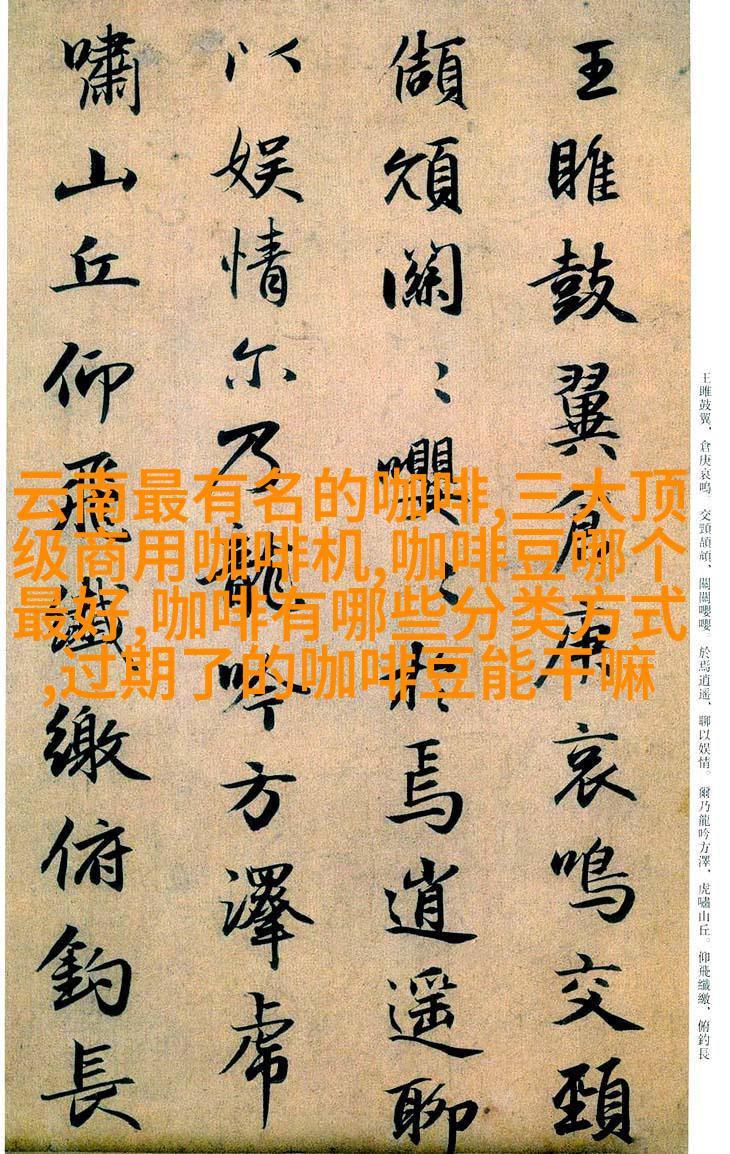 王雎鼓翼倉庚哀鳴交頸
頡頏關〻嚶〻於焉逍遥聊
以娱情尔乃龍吟方澤虎
嘯山丘仰飛纖繳俯釣長
云南最有名的咖啡,三大顶
级商用咖啡机,咖啡豆哪个
最好,咖啡有哪些分类方式
,过期了的咖啡豆能干嘛
王雎鼓翼，倉庚哀鳴。交頸頡頏，關關嚶嚶。於焉逍遥，聊以娱情。爾乃龍吟方澤，虎嘯山丘。仰飛纖繳，俯釣長